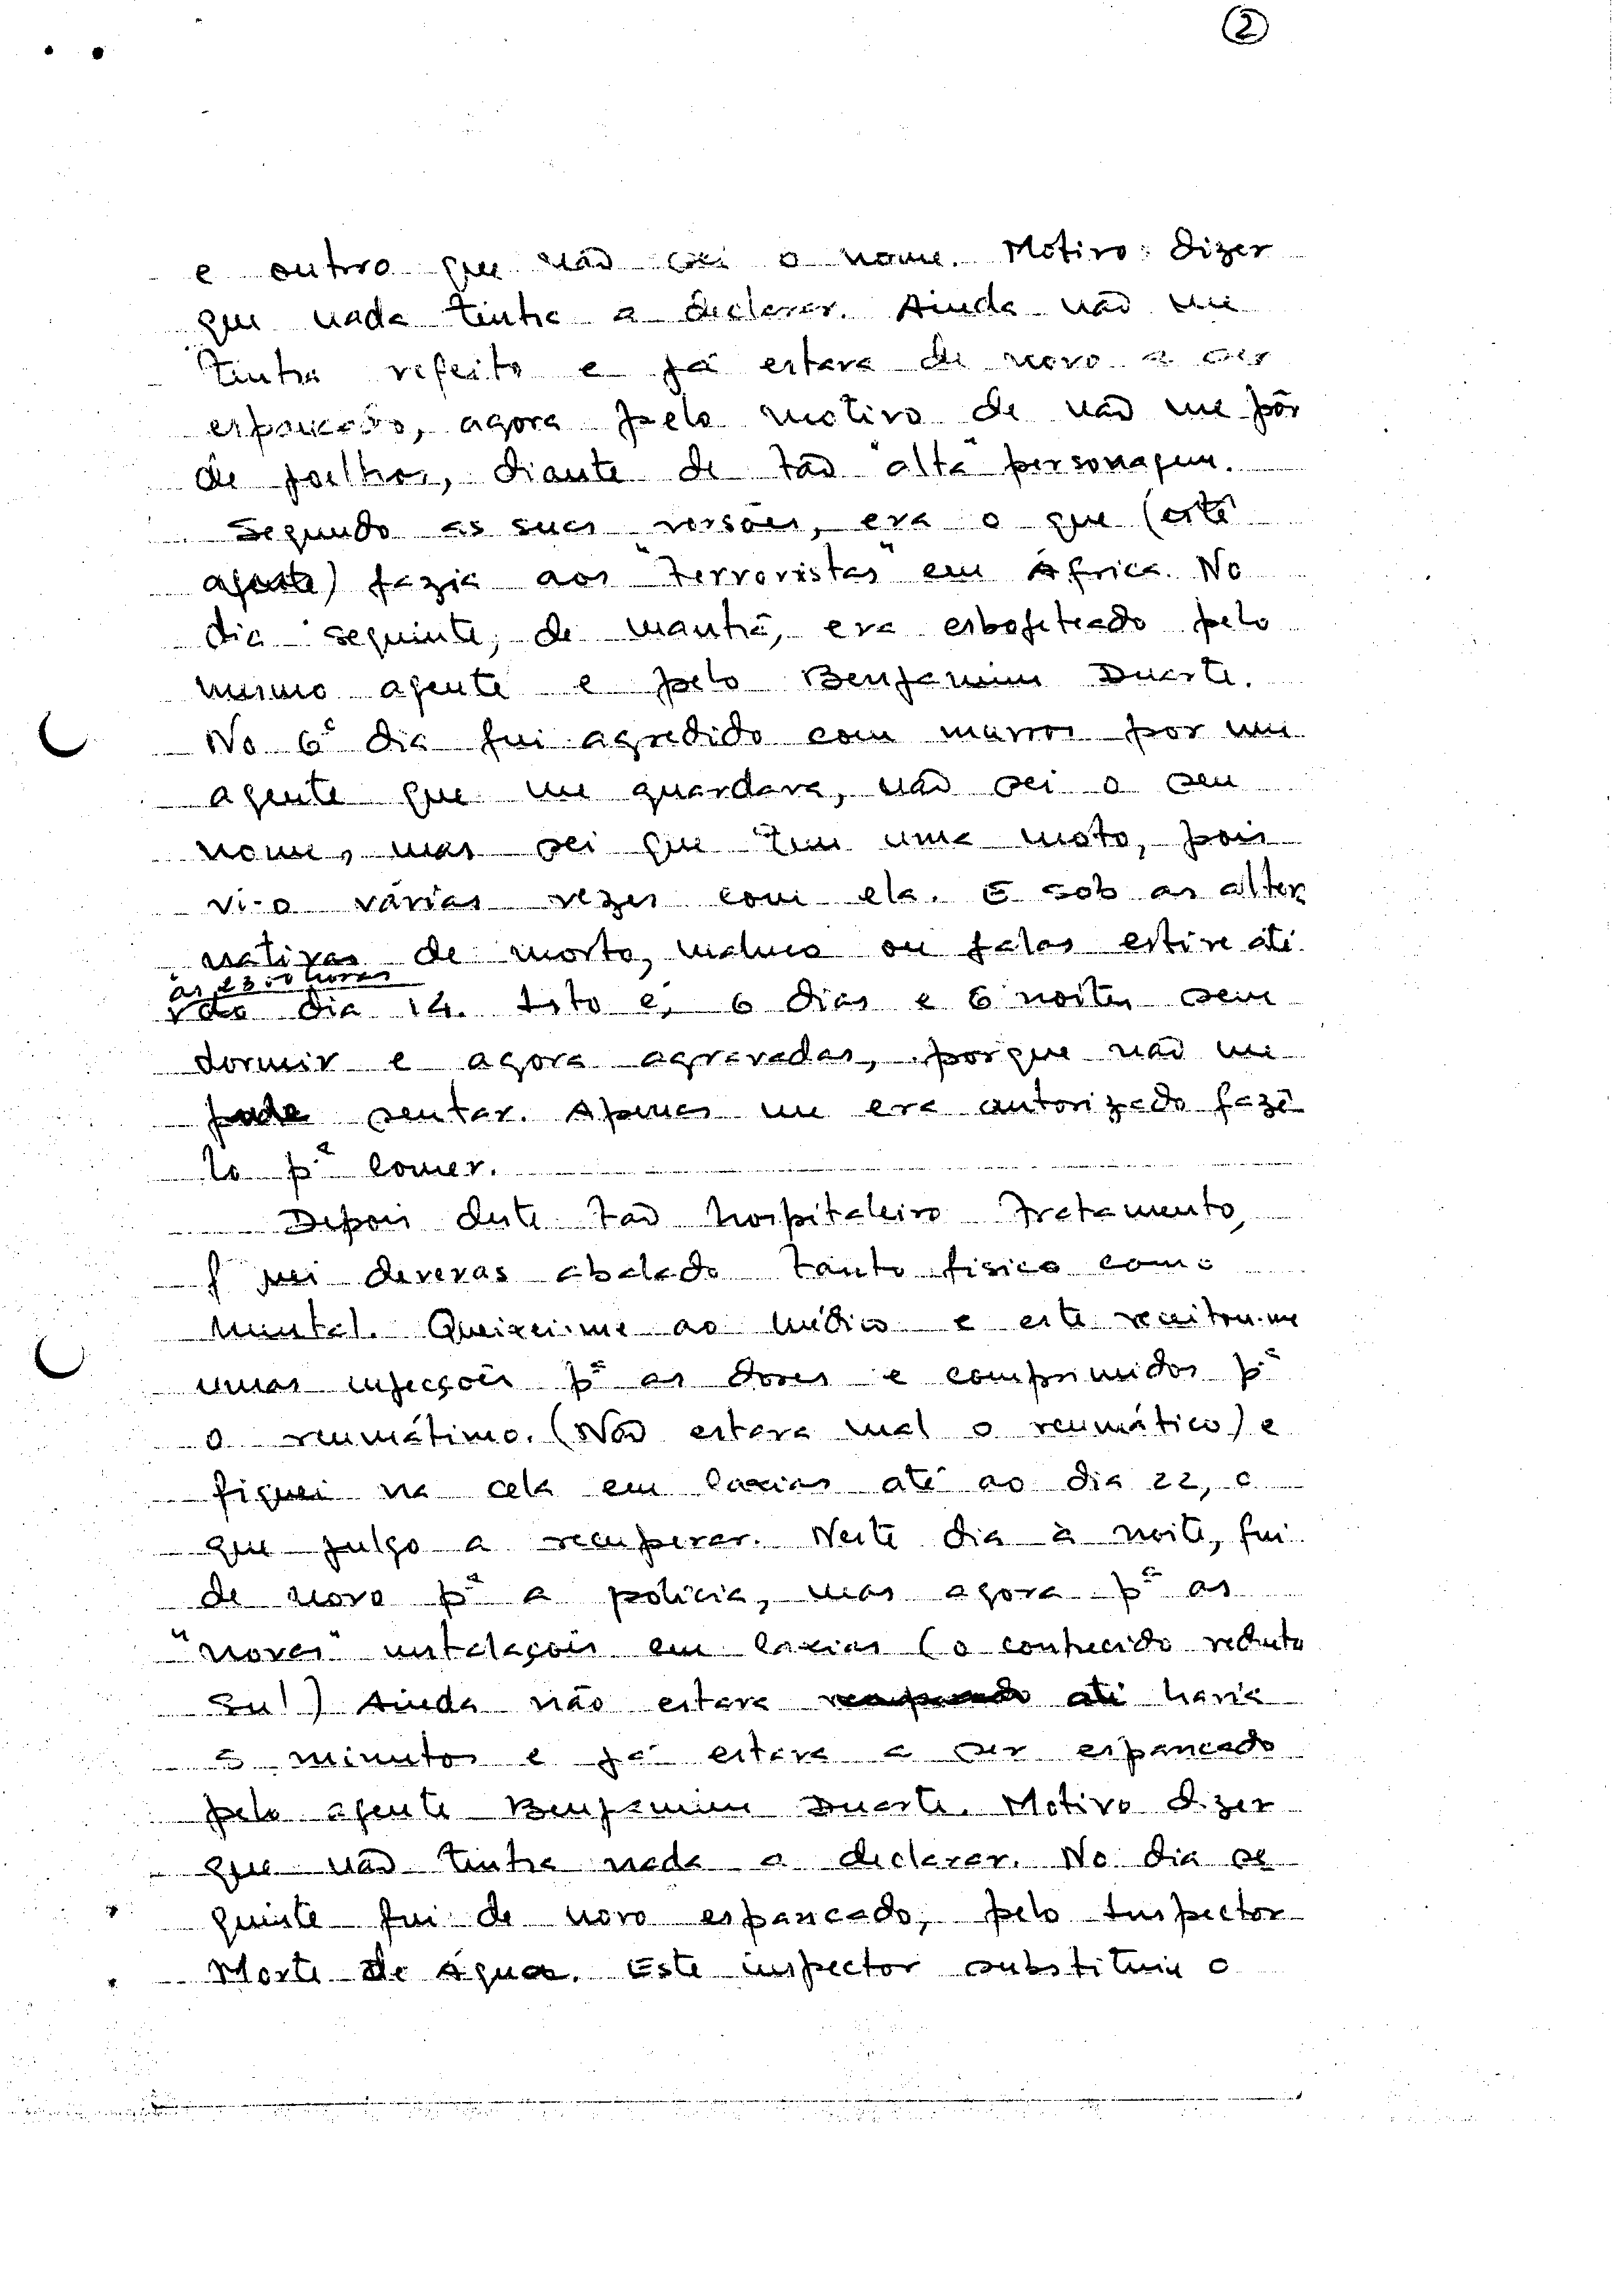 2
e outro que não sei o nome. Motivo: dizer
que nada tinha a declarar. Ainda não me
tinha refeito e já estava de novo a ser
espancado, agora pelo motivo de não me pôr
de joelhos, diante de tão "alta" personagem.
Segundo as suas versões, era o que (este
agente) fazia aos "terroristas" em África. No
dia seguinte, de manhã, era esbofeteado pelo
mesmo agente e pelo Benjamim Duarte.
No 6º dia fui agredido com murros por um
agente que me guardava, não sei o seu
nome, mas sei que tem uma moto, pois
vi-o várias vezes com ela. E sob as alter
nativas de morto, maluco ou falas estive até
às 23.00 horas
do dia 14. Isto é, 6 dias e 6 noites sem
dormir e agora agravadas, porque não me
pude sentar. Apenas me era autorizado fazê
lo pª comer.
Depois deste tão hospitaleiro tratamento,
fiquei deveras abalado tanto fisico como
mental. Queixei-me ao médico e este receitou-me
umas injecções pª as dores e comprimidos pª
o reumátimo. (Não estava mal o reumático) e
fiquei na cela em Caxias até ao dia 22, o
que julgo a recuperar. Neste dia à noite, fui
de novo pª a policia, mas agora pª as
"novas" instalações em Caxias (o conhecido reduto
sul) Ainda não estava até havia
5 minutos e já estava a ser espancado
pelo agente Benjamim Duarte. Motivo dizer
que não tinha nada a declarar. No dia se
guinte fui de novo espancado, pelo Inspector
Morte de Água. Este inspector substituiu o